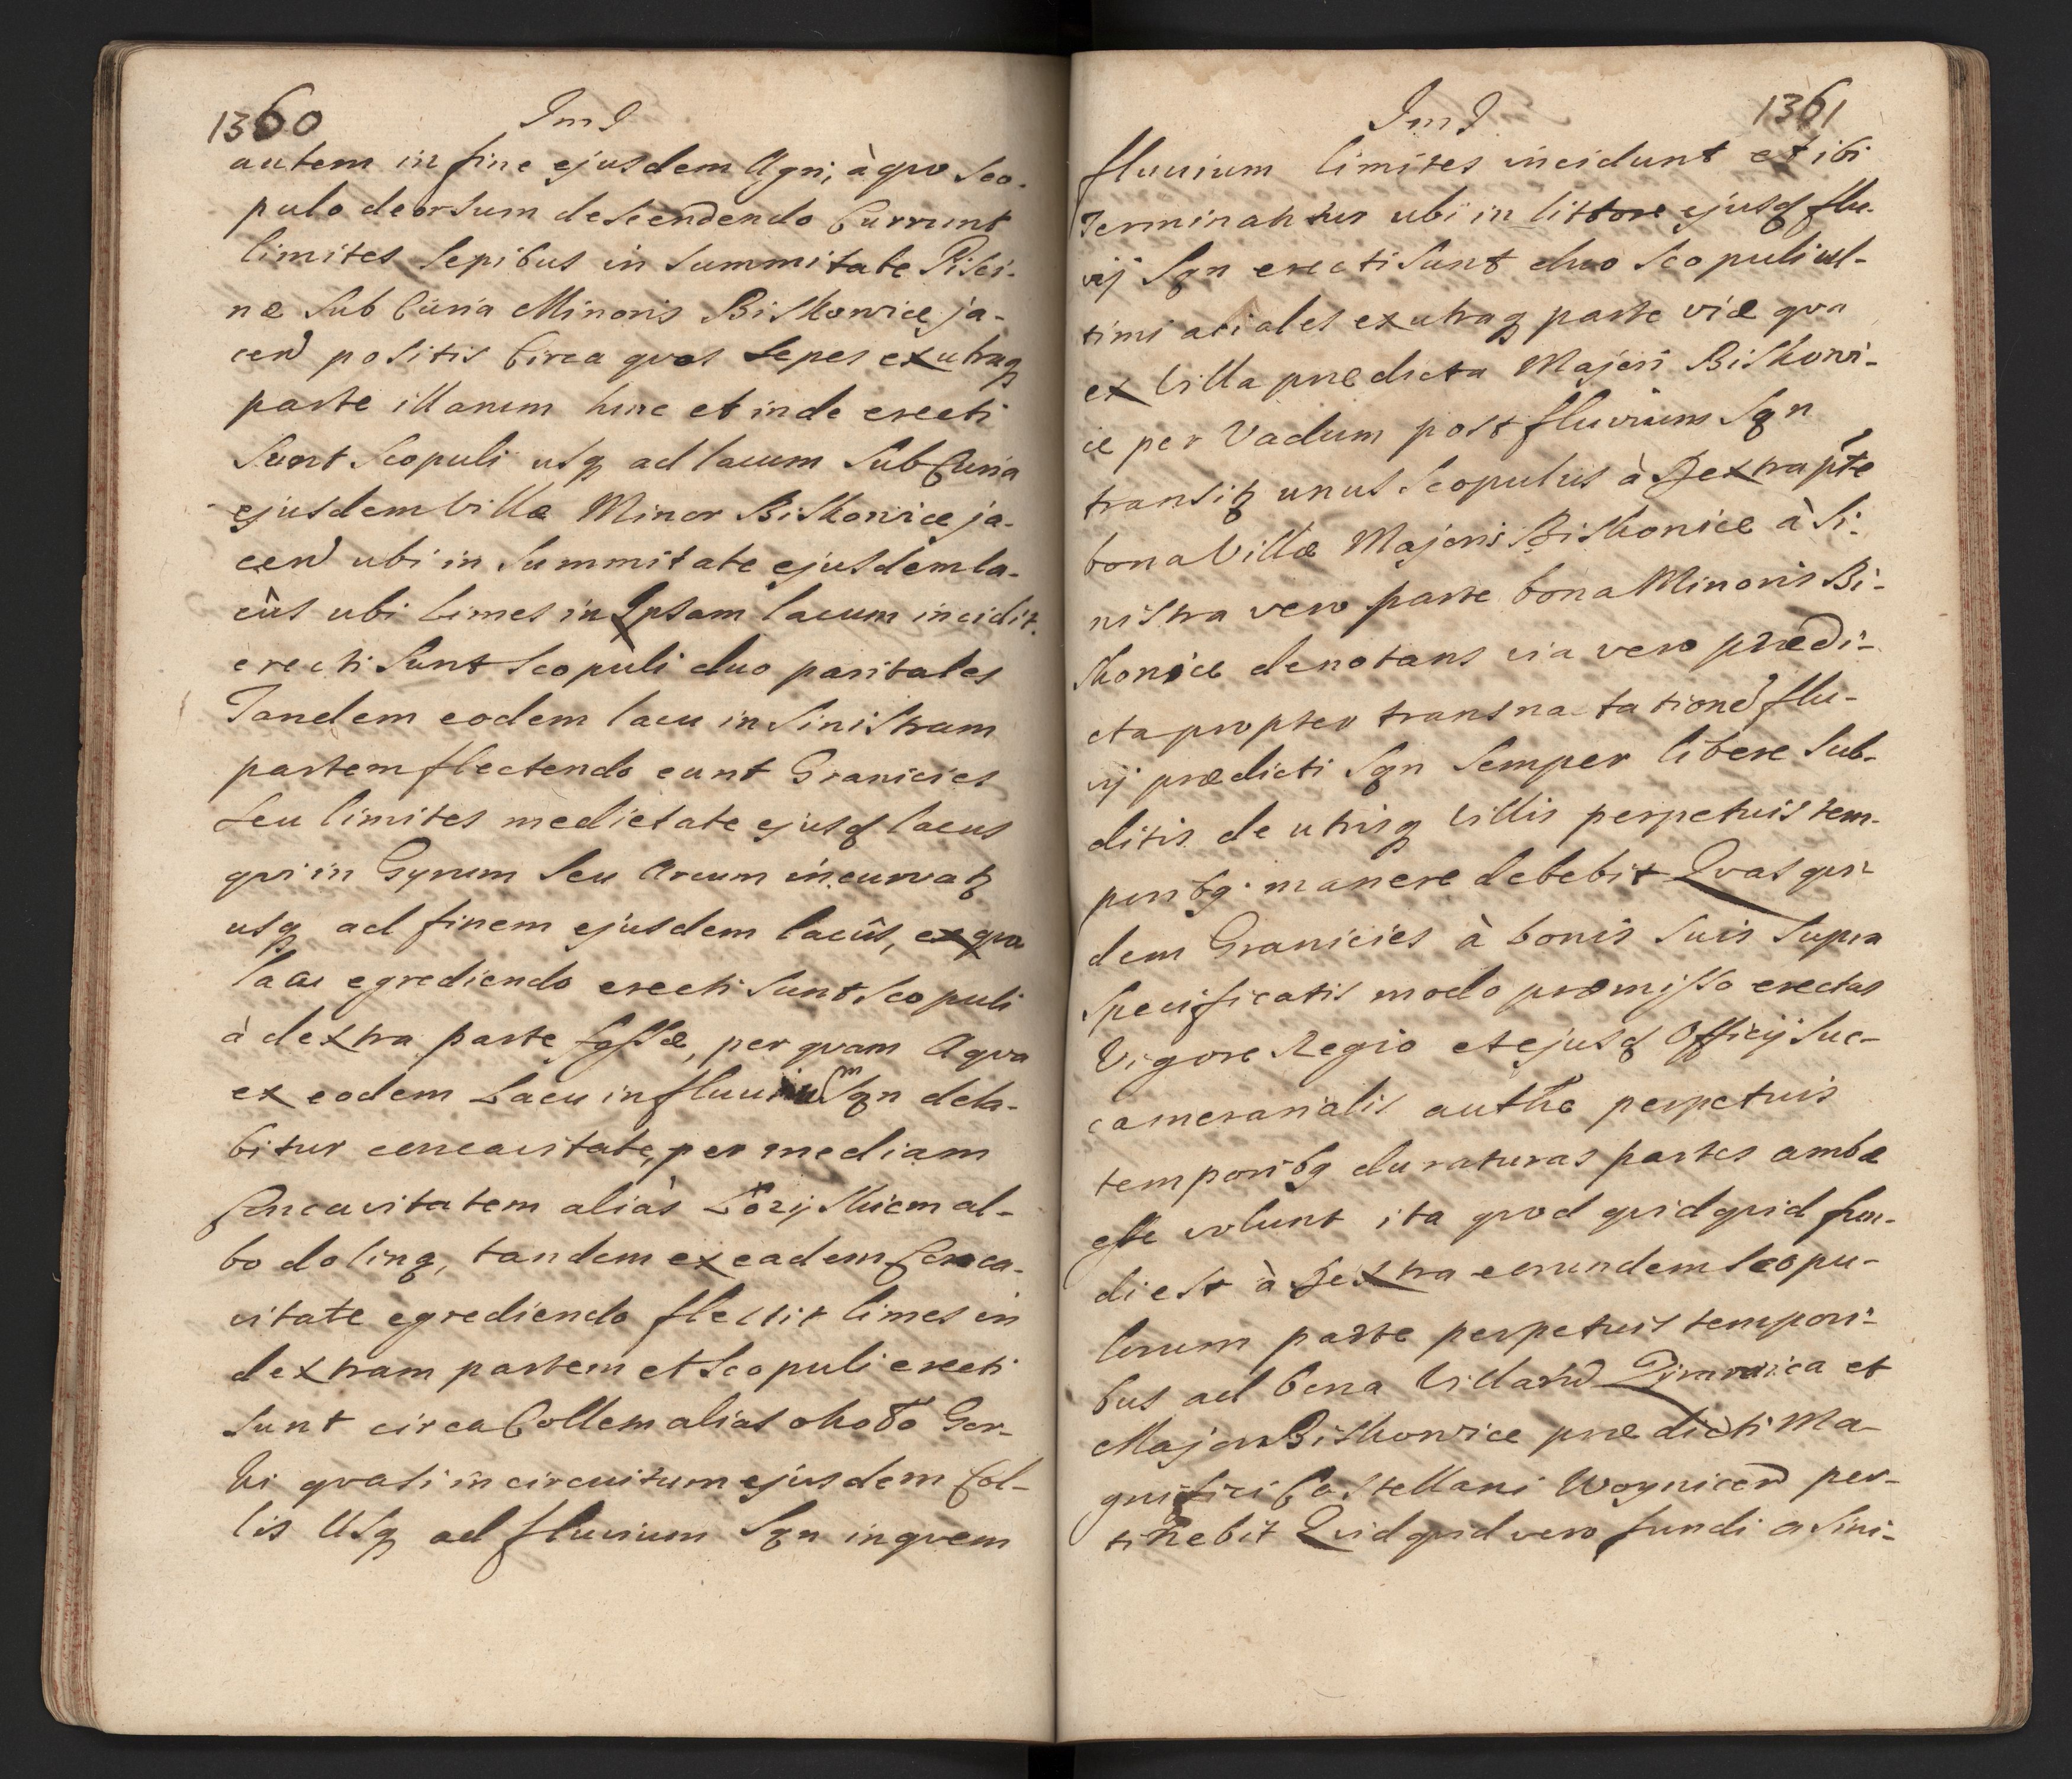 1360
autem in fine ejusdem Agri, à quo Sco-
pulo deorsum descendendo Currunt
limites Sepibus in Summitate Pisci-
næ Sub Curia Minoris Biskowice ja-
cen positis Circa quos Sepes ex utraq
parte illarum hinc et inde erecti
Sunt Scopuli usq ad lacum Sub Curia
ejusdem Villæ Minor Biskowice ja-
cen ubi in Summitate ejusdem la-
cûs ubi limes in Ipsam lacum incidit.
erecti Sunt Scopuli duo paritales
Tandem eodem lacu in Sinistram
partem flectendo eunt Granicies
Seu limites medietate ejusd lacus
qui in Gyrum Seu Arcum incurvatq
usq ad finem ejusdem lacûs, ex quo
lacu egrediendo erecti Sunt Scopuli
à dextra parte fossæ, per quam Aqva
ex eodem Lacu in fluvium Sqn dela-
bitur concavitate, per mediam
Concavitatem aliàs Lozyskiem al-
bo doling, tandem ex eadem Conca-
vitate egrediendo flectit limes in
dextram partem et Scopuli erecti
Sunt circa Collem alias około Gor-
ki quasi in circuitum ejusdem Col-
lis Usq ad fluvium Sqn in quem
1361
fluvium limites incidunt et ibi
Terminantur ubi in littore ejusd flu-
vij Sqn erecti Sunt duo Scopuli ul-
timi aciales ex utraq parte viæ qva
ex Villa prædicta Majori Biskowi-
ce per Vadum post fluvium Sqn
transitq unus Scopulus à Dextra pte
bona Villæ Majoris Biskowice à Si-
nistra vero parte bona Minoris Bi-
skowice denotans via vero prædi-
cta propter transnatatione flu-
vij prædicti Sqn Semper libere Sub-
ditis de utrisq Villis perpetuis tem-
poribq manere debebit Quas qui-
dem Granicies à bonis Suis Supra
Specificatis modo præmisso erectas
Vigore Regio et ejusd Officij Suc-
camerarialis autthe perpetuis
temporibq duraturas partes ambæ
esse volunt ita quod quidquid fun-
di est à Dextra eorundem Scopu-
lorum parte perpetuis tempori-
bus ad bona Villarum et
Major Biskowice prædicti Ma-
gnifici Castellani Woynicen per-
tinebit Quidquid vero fundi a Sini-